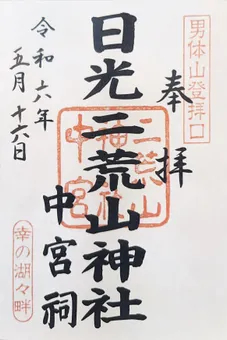 男体山登拝口
奉拝
日光二荒山神社
中宮祠
二荒山神社中宮
令和六年
五月十六日
幸の湖々畔